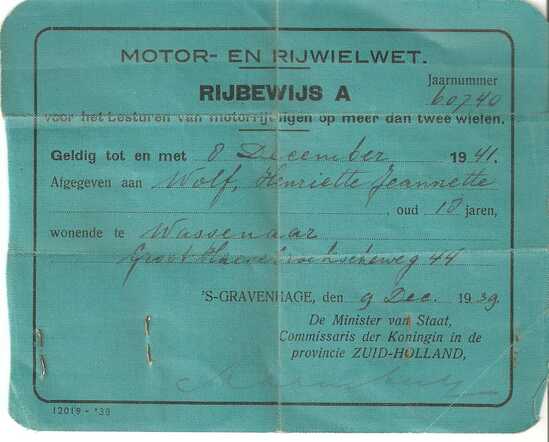 MOTOR- EN RIJWIELWET.
Jaarnummer
RIJBEWIJS A 60740
voor het besturen van motorrijtuigen op meer dan twee wielen.
Geldig tot en met 8 December 1941.
Afgegeven aan Wolf, Henriette Jeannette
, oud 18 jaren,
wonende te Wassenaar
Groot Haesebroekscheweg 44
'S-GRAVENHAGE, den 9 Dec. 1939.
De Minister van Staat,
Commissaris der Koningin in de
provincie ZUID-HOLLAND,
12019 - '39